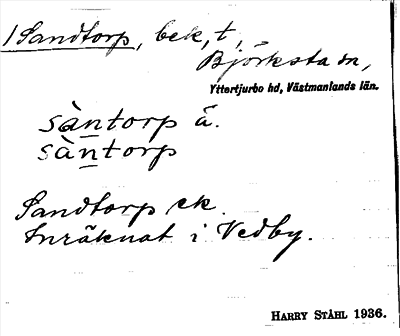 1 Sandtorp, bek, t,
Björksta sn,
Yttertjurbo hd, Västmanlands län.
sàntorp ä.
sàntorp
Sandtorp ek
Inräknat i Vedby.
HARRY STÅHL 1936.